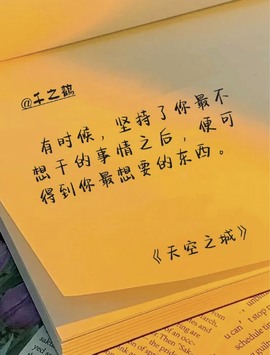 @千之鹤
有时候，坚持了你最不
想干的事情之后，便可
得到你最想要的东西。
《天空之城》